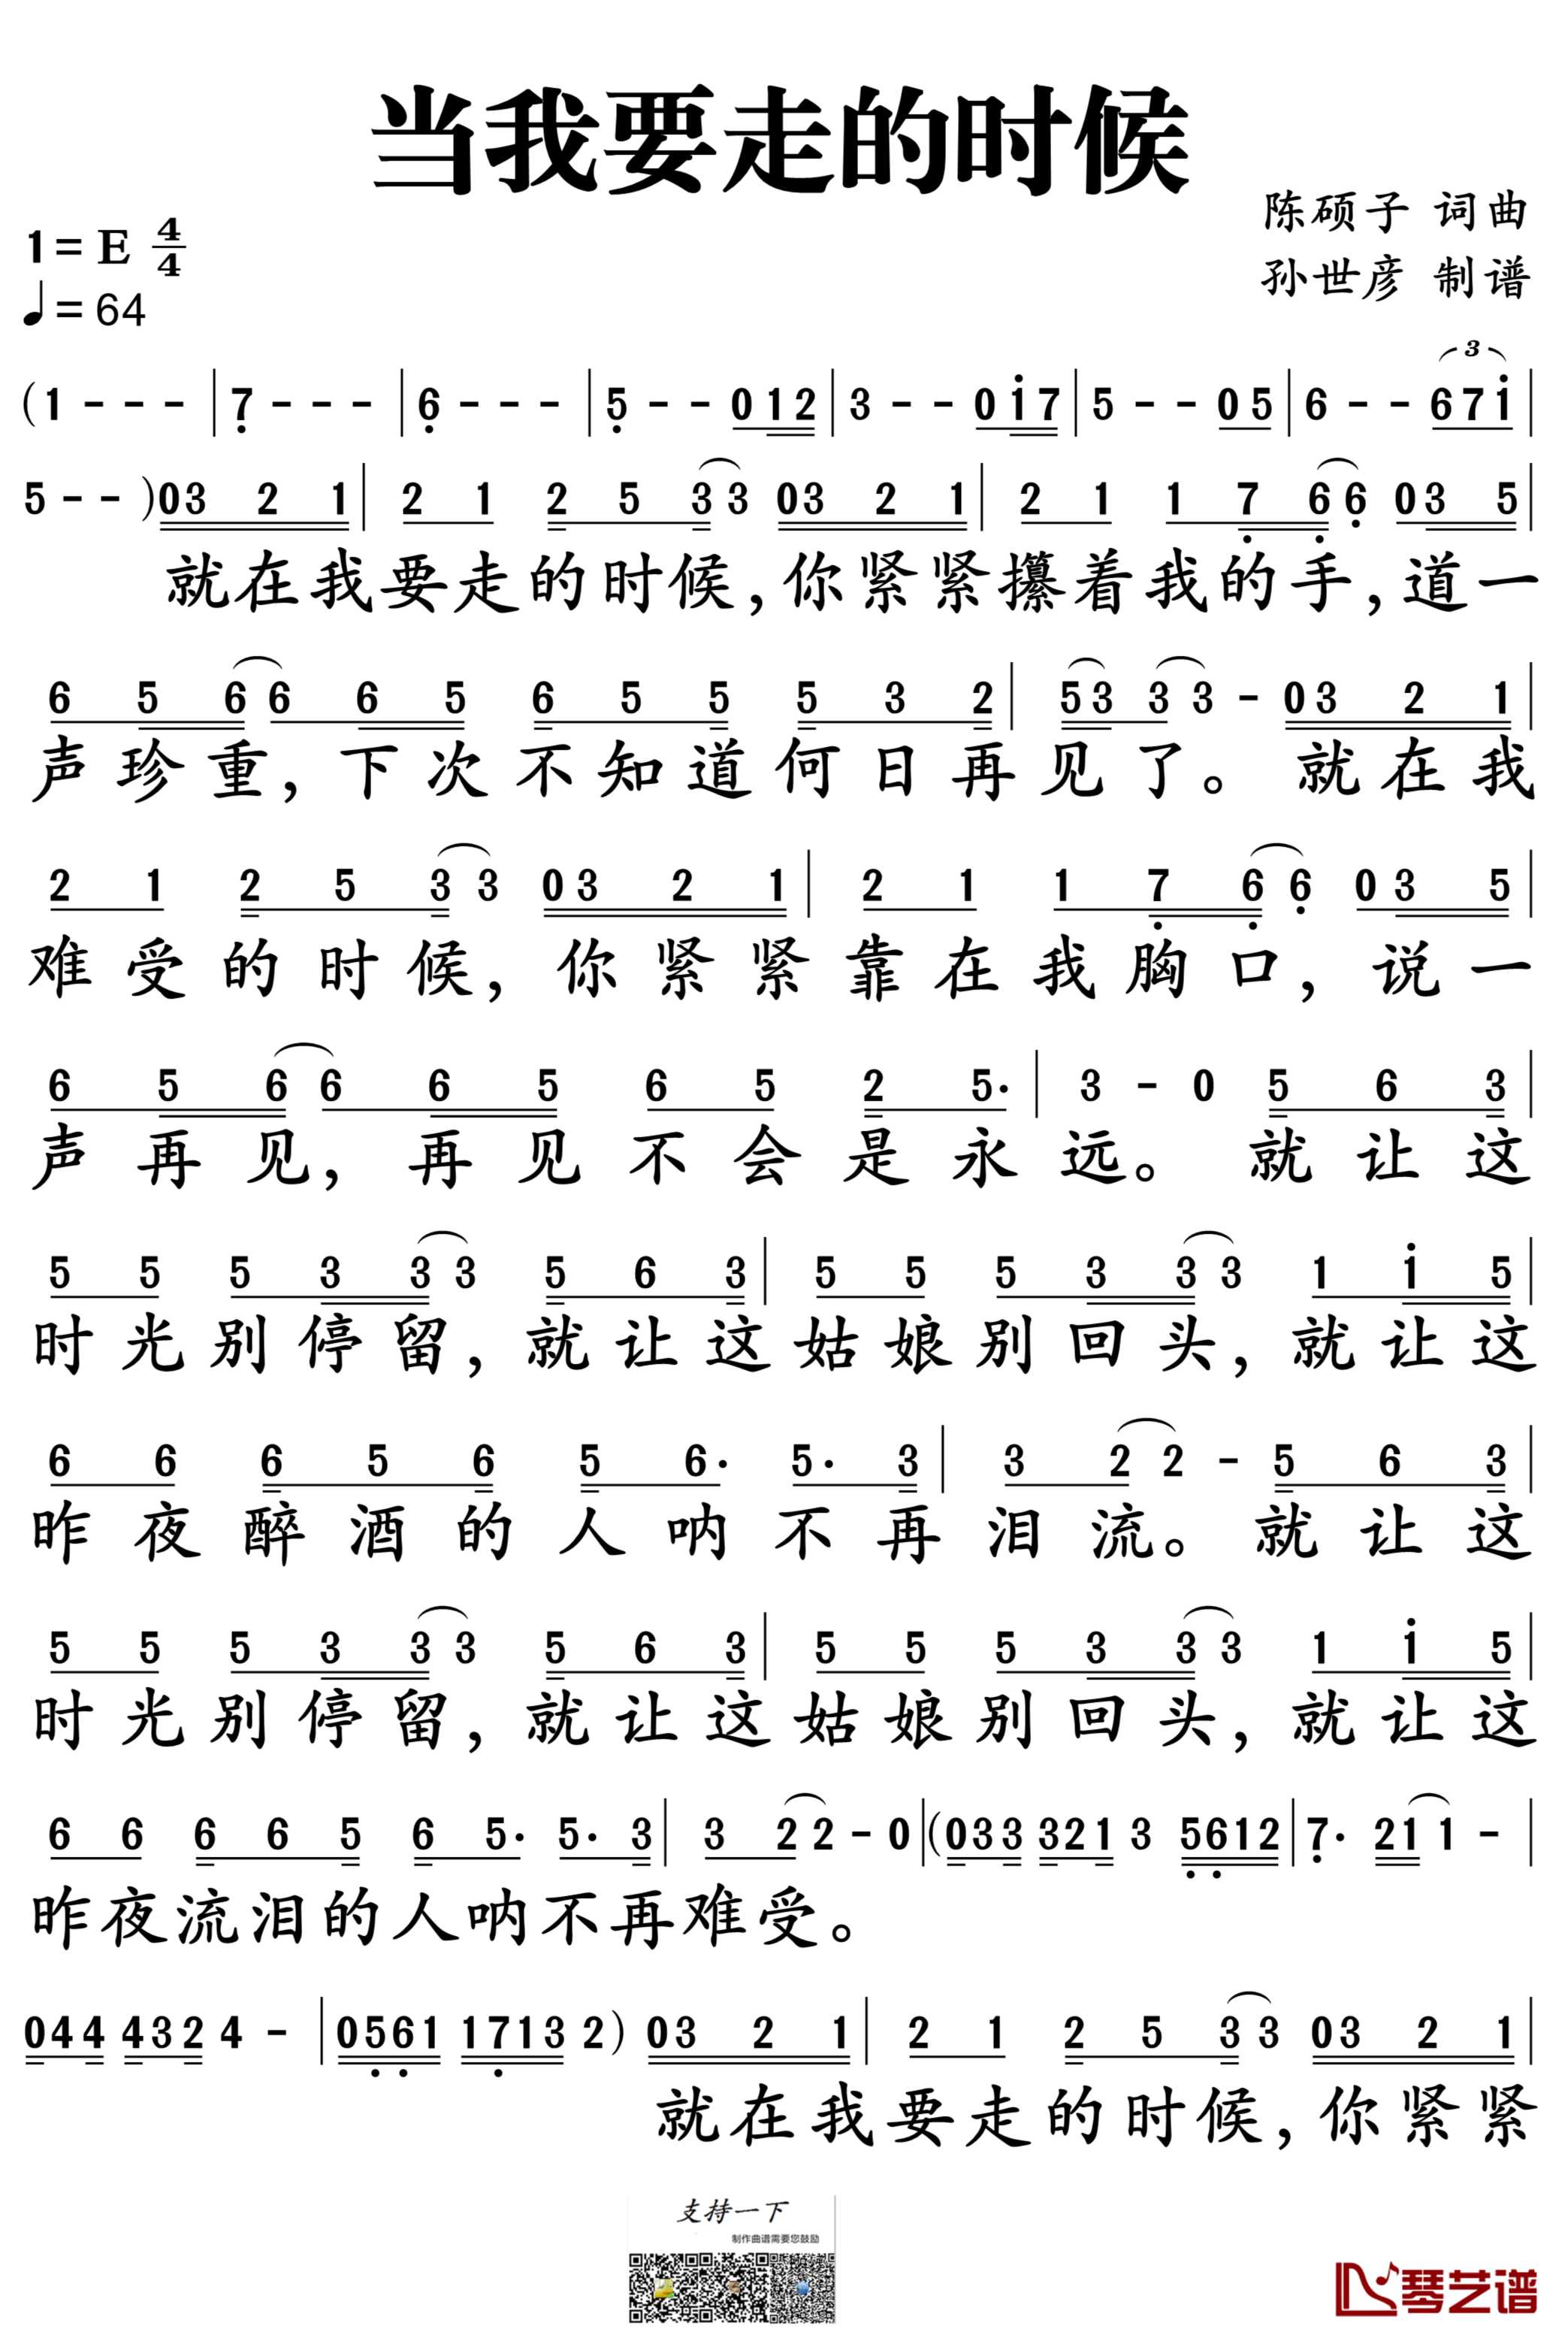 当我要走的时候
陈硕子 词曲
1= E 4/4
孙世彦 制谱
♩= 64
(1 - - - | 7̣ - - - | 6̣ - - - | 5̣ - - 0 1 2 | 3 - - 0 1̇ 7 | 5 - - 0 5 | 6 - - 6 7 1̇ |
3
5 - - ) 0 3 2 1 | 2 1 2 5 3 3 0 3 2 1 | 2 1 1 7̣ 6̣ 6̣ 0 3 5 |
就在我要走的时候,你紧紧攥着我的手,道一
6 5 6 6 6 5 6 5 5 5 3 2 | 5 3 3 3 - 0 3 2 1 |
声珍重,下次不知道何日再见了。就在我
2 1 2 5 3 3 0 3 2 1 | 2 1 1 7̣ 6̣ 6̣ 0 3 5 |
难受的时候,你紧紧靠在我胸口,说一
6 5 6 6 6 5 6 5 2 5· | 3 - 0 5 6 3 |
声再见,再见不会是永远。就让这
5 5 5 3 3 3 5 6 3 | 5 5 5 3 3 3 1 1̇ 5 |
时光别停留,就让这姑娘别回头,就让这
6 6 6 5 6 5 6· 5· 3 | 3 2 2 - 5 6 3 |
昨夜醉酒的人呐不再泪流。就让这
5 5 5 3 3 3 5 6 3 | 5 5 5 3 3 3 1 1̇ 5 |
时光别停留,就让这姑娘别回头,就让这
6 6 6 6 5 6 5· 5· 3 | 3 2 2 - 0 | (0 3 3 3 2 1 3 5̣ 6̣ 1 2 | 7̣· 2 1 1 - |
昨夜流泪的人呐不再难受。
0 4 4 4 3 2 4 - | 0 5̣ 6̣ 1 1 7̣ 1 3 2 ) 0 3 2 1 | 2 1 2 5 3 3 0 3 2 1 |
就在我要走的时候,你紧紧
支持一下
制作曲谱需要您鼓励
琴艺谱